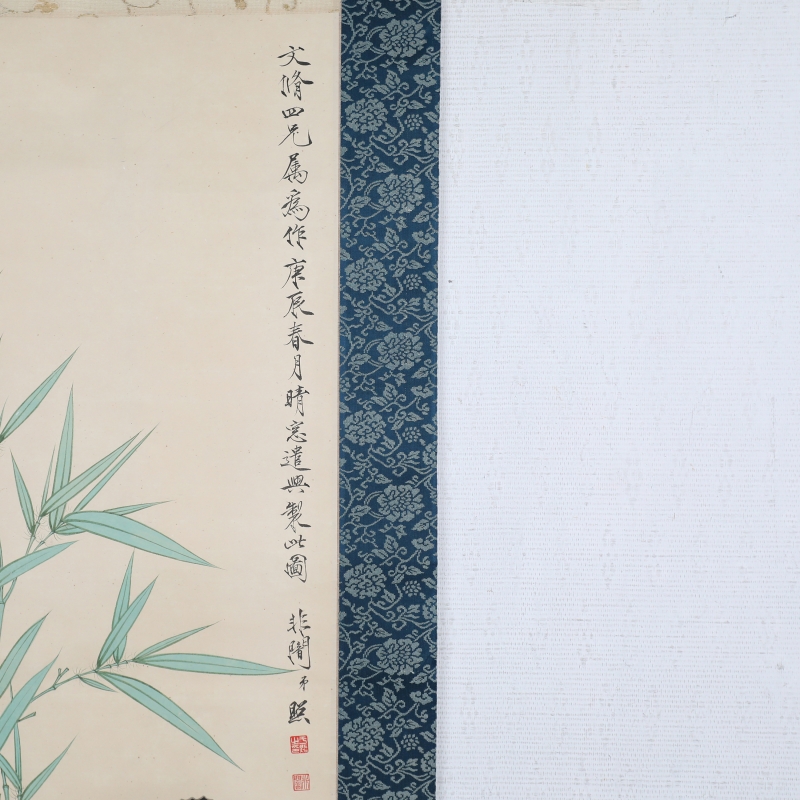 文脩四兄属為作庚辰春月晴窓遣興製此圖
非闇弟照